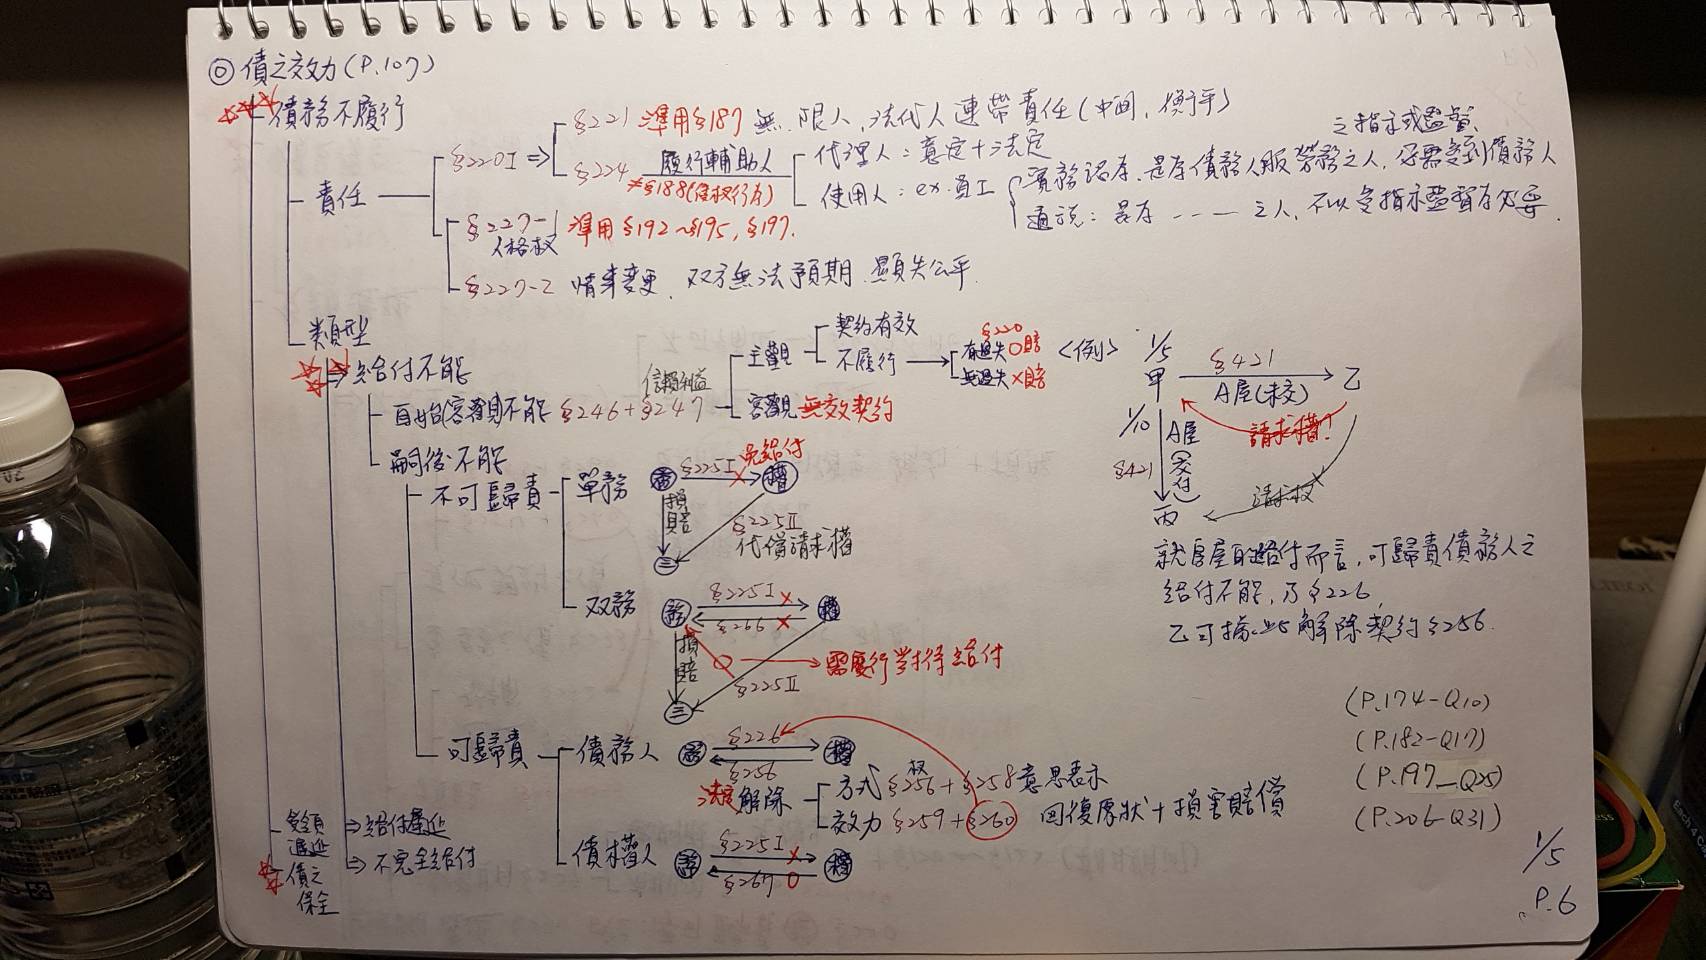 ◎ 債之效力(P.107)
債務不履行
責任
§220I ⇒
§221 準用§187 無.限人,法代人連帶責任(中間,衡平)
§224 履行輔助人
≠§188(侵權行為)
代理人:意定+法定
使用人:ex.員工
之指示或監督
實務認為.是為債務人服勞務之人,必需受到債務人
通說:是為 ---- 之人,不以受指示監督為必要.
§227-1 準用§192~§195,§197.
人格权
§227-2 情事變更. 双方無法預期.顯失公平.
類型
⇒給付不能
自始(客觀)不能 §246+§247
信賴利益
主觀
契約有效
不履行
§220
有過失O賠
無過失×賠
客觀 無效契約
嗣後不能
不可歸責
單務
務 §225I × 免給付 權
損賠
§225II
代償請求權
三
双務
務 §225I × 權
§266 ×
損賠
O → 需履行對待給付
§225II
三
可歸責
債務人
務 §226 權
§256
法定解除
方式 §256+§258意思表示
权
效力 §259+§260 回復原狀+損害賠償
債權人
務 §225I × 權
§267 O
⇒給付遲延
⇒不完全給付
受領遲延
債之保全
<例>
1/5
甲 §421 乙
A屋(未交)
請求權?
1/10
A屋(交付)
§421
請求权
丙
就房屋的給付而言,可歸責債務人之
給付不能,乃§226,
乙可摘此解除契約§256.
(P.174-Q10)
(P.182-Q17)
(P.197-Q25)
(P.206-Q31)
1/5
P.6